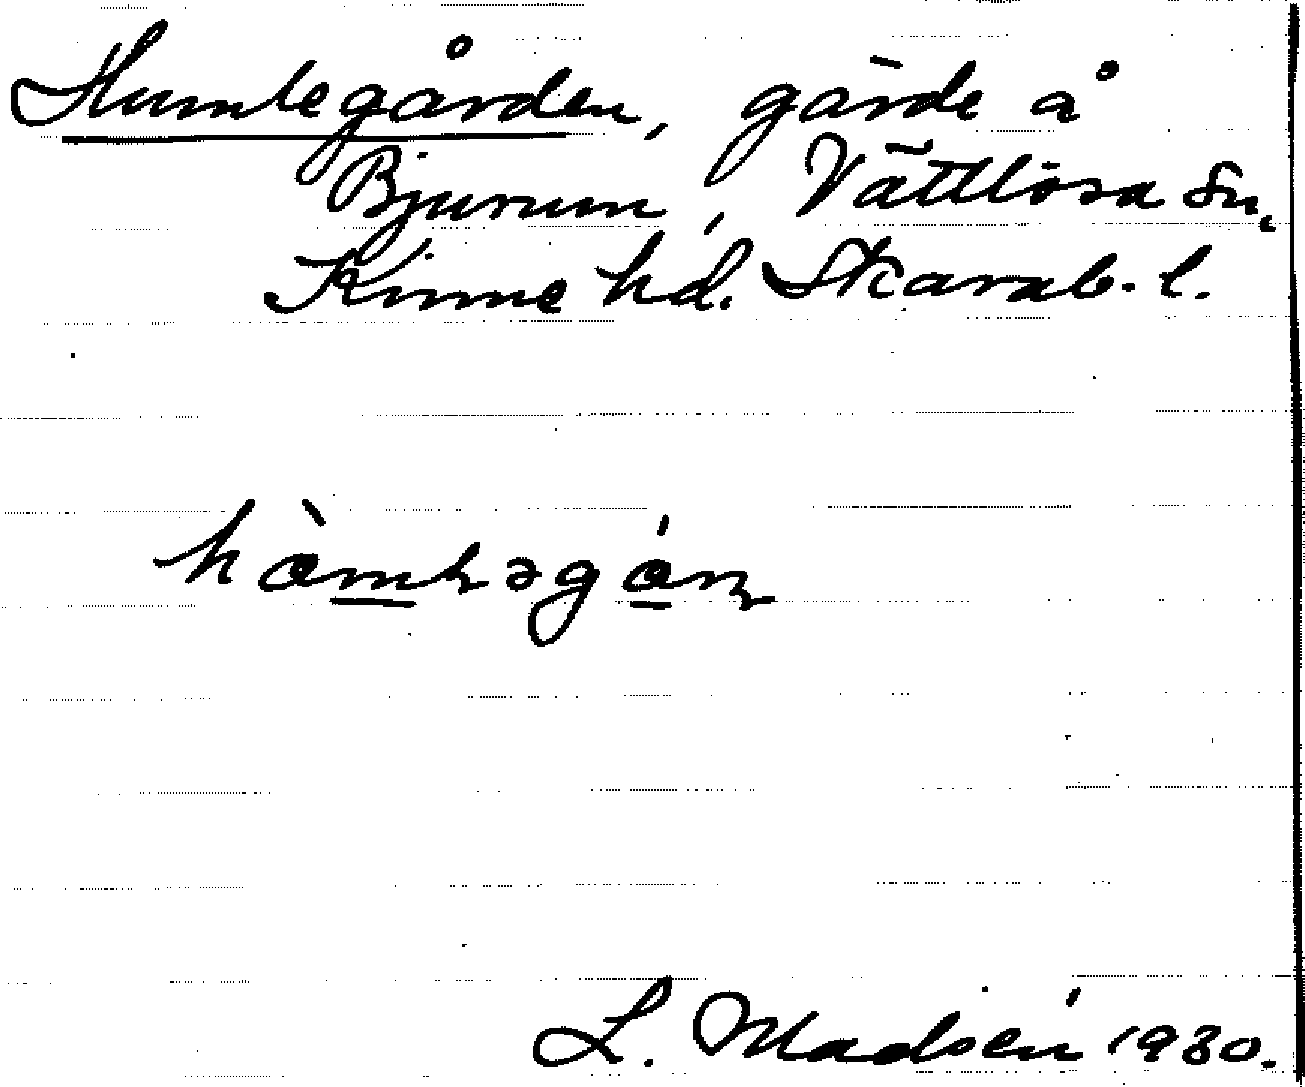 Humlegården, gärde å
Bjurum, Vättlösa sn,
Kinne hd. Skarab. l.
L. Madsén 1930.